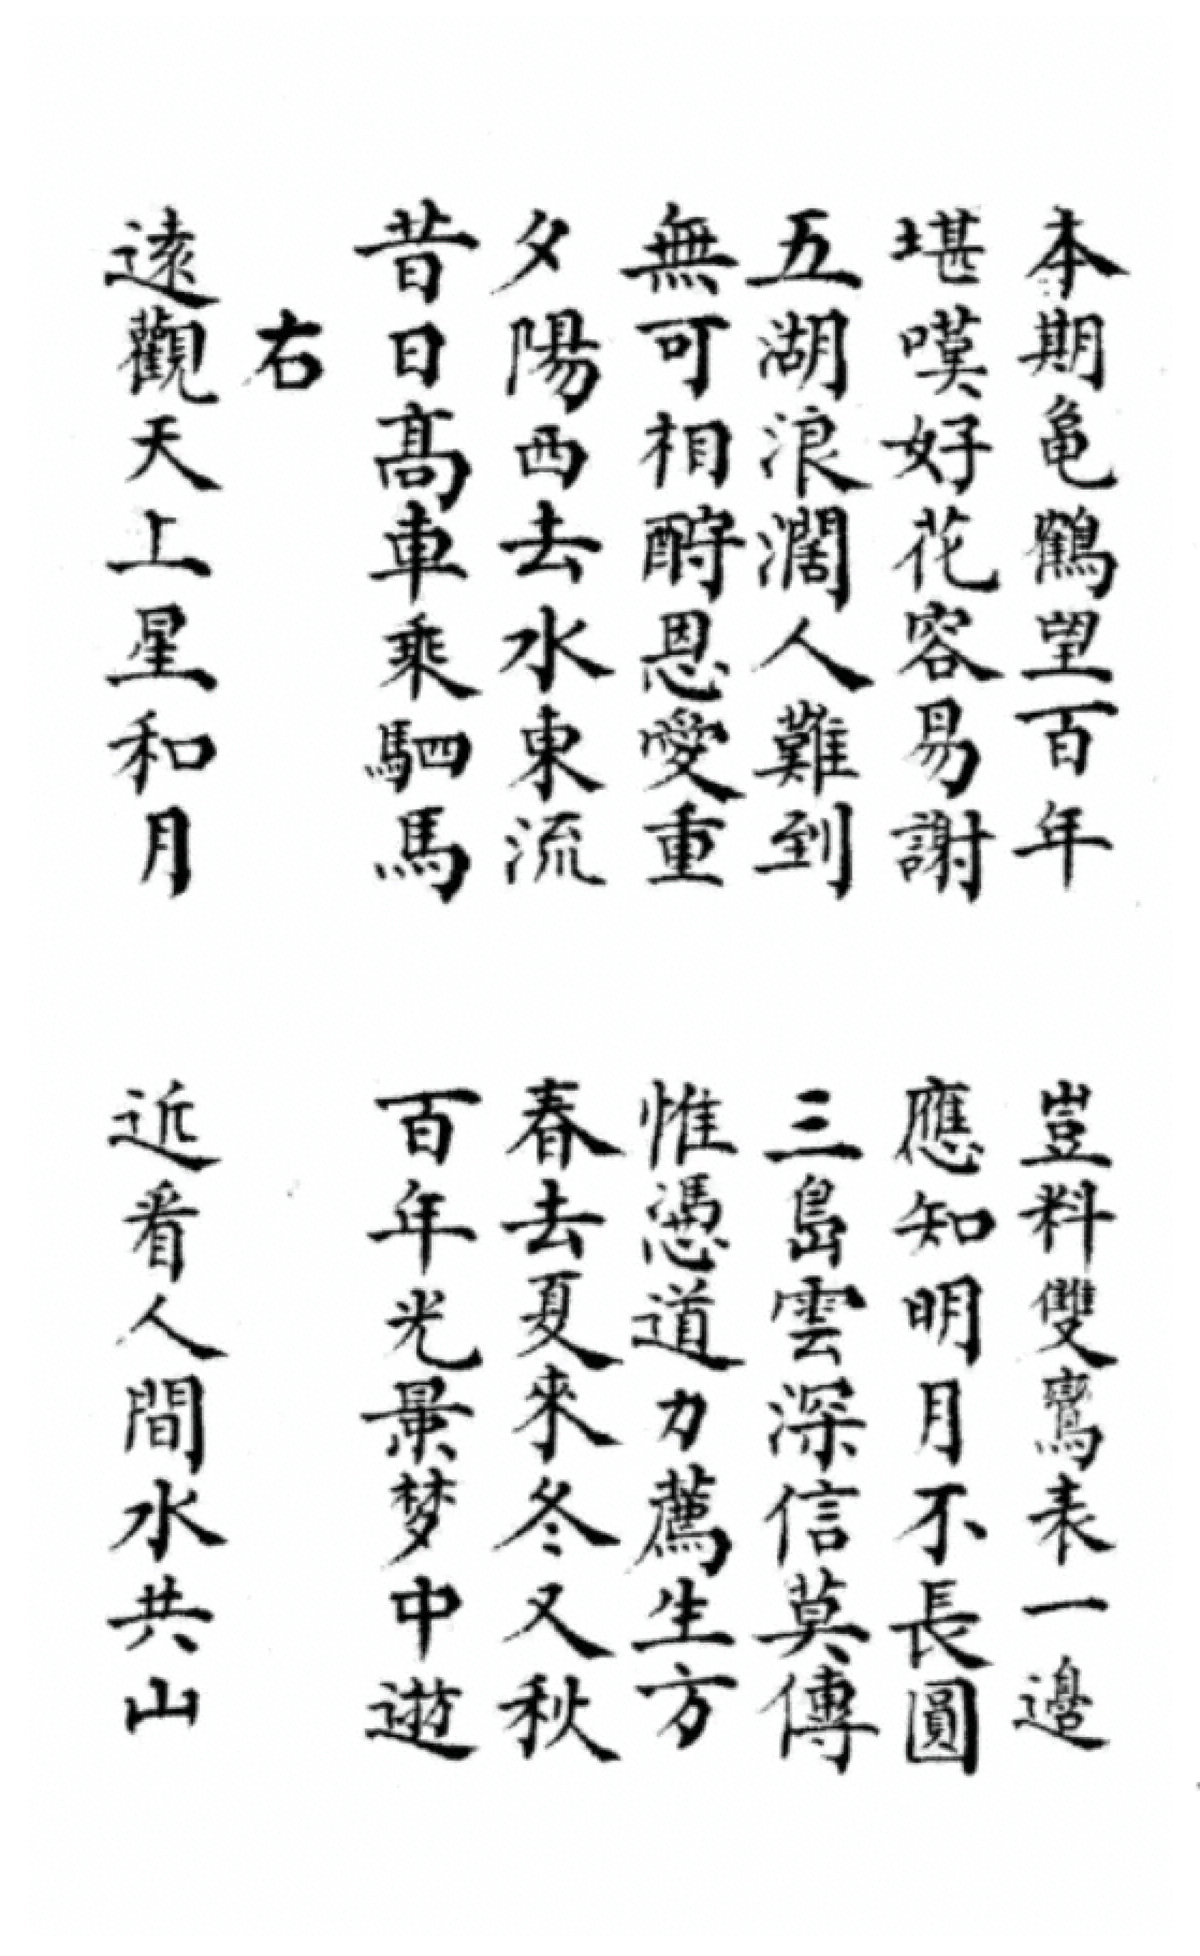 本期亀鶴望百年
豈料雙鸞表一邊
堪嘆好花容易謝
應知明月不長圓
五湖浪濶人難到
三島雲深信莫傳
無可相酹恩愛重
惟憑道力薦生方
夕陽西去水東流
春去夏來冬又秋
昔日髙車乘駟馬
百年光景梦中遊
右
逺觀天上星和月
近看人間水共山